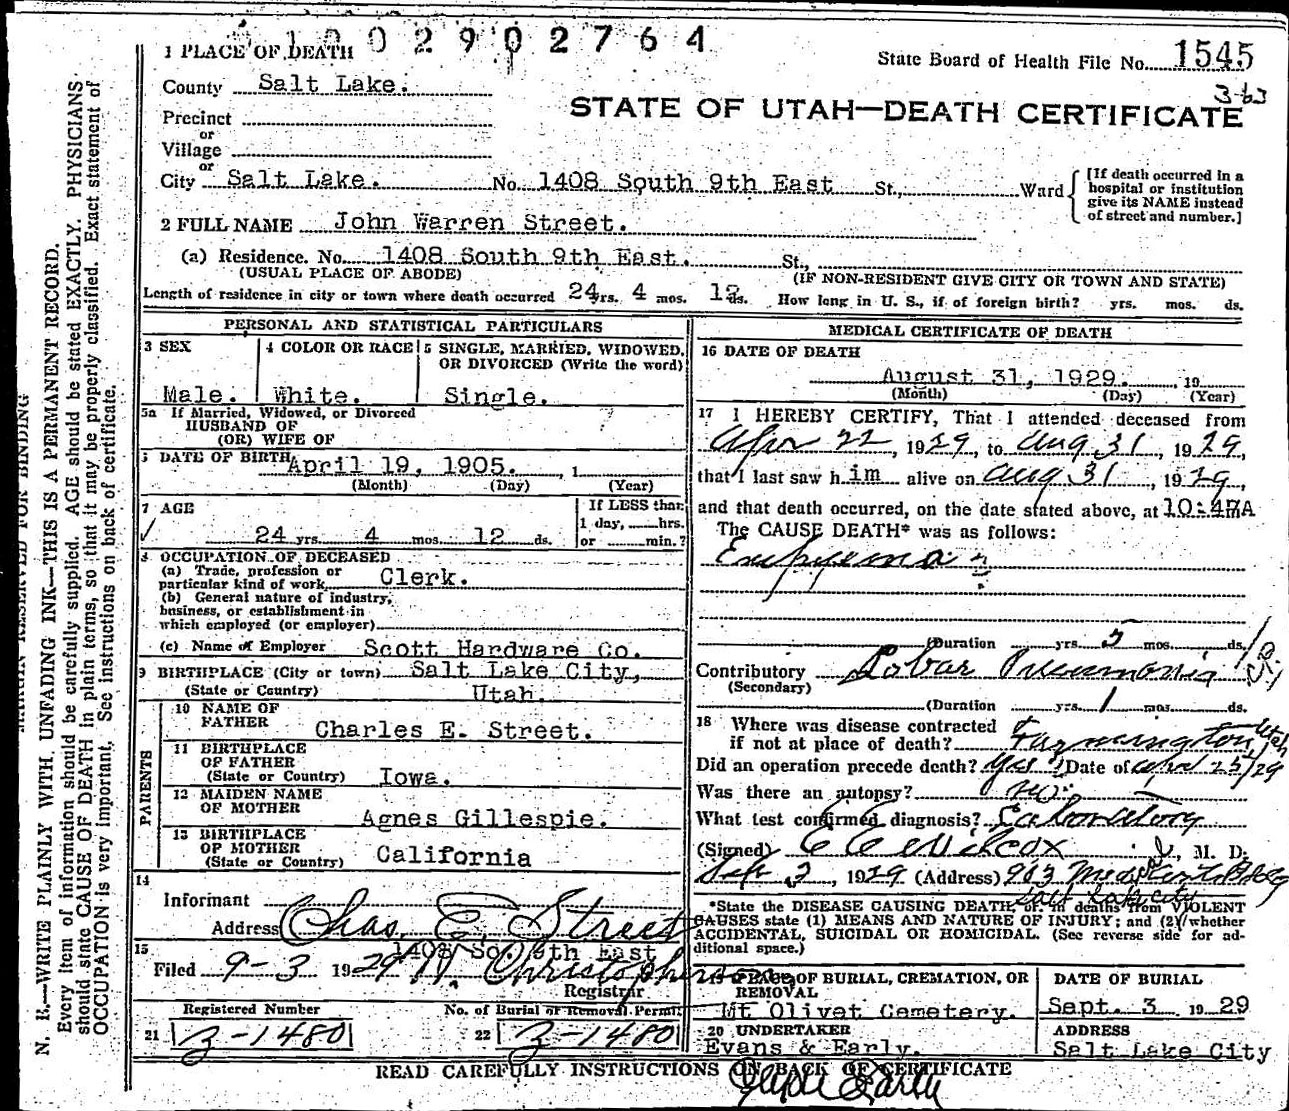 0 0 2 9 0 2 7 6 4
1 PLACE OF DEATH
State Board of Health File No. 1545
3-63
County Salt Lake.
STATE OF UTAH—DEATH CERTIFICATE
Precinct
or
Village
or
City Salt Lake. No. 1408 South 9th East St., Ward
[If death occurred in a
hospital or institution
give its NAME instead
of street and number.]
2 FULL NAME John Warren Street.
(a) Residence. No. 1408 South 9th East. St.,
(USUAL PLACE OF ABODE) (IF NON-RESIDENT GIVE CITY OR TOWN AND STATE)
Length of residence in city or town where death occurred 24 yrs. 4 mos. 12 ds. How long in U. S., if of foreign birth? yrs. mos. ds.
PERSONAL AND STATISTICAL PARTICULARS
3 SEX
Male.
4 COLOR OR RACE
White.
5 SINGLE, MARRIED, WIDOWED,
OR DIVORCED (Write the word)
Single.
5a If Married, Widowed, or Divorced
HUSBAND OF
(OR) WIFE OF
DATE OF BIRTH April 19, 1905. , 1
(Month) (Day) (Year)
7 AGE
24 yrs. 4 mos. 12 ds.
If LESS than
1 day, hrs.
or min.?
8 OCCUPATION OF DECEASED
(a) Trade, profession or
particular kind of work Clerk.
(b) General nature of industry,
business, or establishment in
which employed (or employer)
(c) Name of Employer Scott Hardware Co.
9 BIRTHPLACE (City or town) Salt Lake City,
(State or Country) Utah.
PARENTS
10 NAME OF
FATHER Charles E. Street.
11 BIRTHPLACE
OF FATHER
(State or Country) Iowa.
12 MAIDEN NAME
OF MOTHER Agnes Gillespie.
13 BIRTHPLACE
OF MOTHER
(State or Country) California
14
Informant Chas. E. Street
Address 1408 So. 9th East
15
Filed 9-3 1929
Registrar
Registered Number
21 Z-1480
No. of Burial or Removal Permit
22 Z-1480
MEDICAL CERTIFICATE OF DEATH
16 DATE OF DEATH
August 31, 1929. , 19
(Month) (Day) (Year)
17 I HEREBY CERTIFY, That I attended deceased from
Apr 22, 1929, to Aug 31, 1929,
that I last saw him alive on Aug 31, 1929,
and that death occurred, on the date stated above, at
The CAUSE DEATH* was as follows:
Empyema
(Duration yrs. 5 mos. ds.
Contributory Lobar Pneumonia
(Secondary)
(Duration yrs. 1 mos. ds.
18 Where was disease contracted
if not at place of death? Farmington, Utah
Did an operation precede death? Yes Date of Apr 25/29
Was there an autopsy? no.
What test confirmed diagnosis? Laboratory
(Signed) Wilcox, M. D.
Sep 2, 1929 (Address) 903
Salt Lake City
*State the DISEASE CAUSING DEATH, or in deaths from VIOLENT
CAUSES state (1) MEANS AND NATURE OF INJURY; and (2) whether
ACCIDENTAL, SUICIDAL OR HOMICIDAL. (See reverse side for ad-
ditional space.)
19 PLACE OF BURIAL, CREMATION, OR
REMOVAL
Mt Olivet Cemetery.
DATE OF BURIAL
Sept. 3 19 29
20 UNDERTAKER
Evans & Early.
ADDRESS
Salt Lake City
READ CAREFULLY INSTRUCTIONS ON BACK OF CERTIFICATE
Clyde Early
MARGIN RESERVED FOR BINDING
N. B.—WRITE PLAINLY WITH UNFADING INK—THIS IS A PERMANENT RECORD.
Every item of information should be carefully supplied. AGE should be stated EXACTLY. PHYSICIANS
should state CAUSE OF DEATH in plain terms, so that it may be properly classified. Exact statement of
OCCUPATION is very important. See instructions on back of certificate.